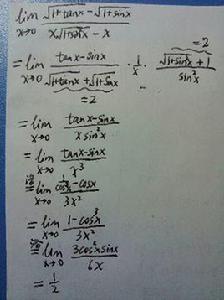 lim x→0 (√(1+tanx) − √(1+sinx)) / (x√(1+sin²x) − x)
= lim x→0 (tanx−sinx) / (√(1+tanx) + √(1+sinx)) · 1/x · (√(1+sin²x) + 1) / sin²x
=2
=2
= lim x→0 (tanx−sinx) / (x sin²x)
= lim x→0 (tanx−sinx) / x³
= lim x→0 (1/cos²x − cosx) / 3x²
= lim x→0 (1−cos³x) / 3x²
= lim x→0 (3cos²x sinx) / 6x
= 1/2